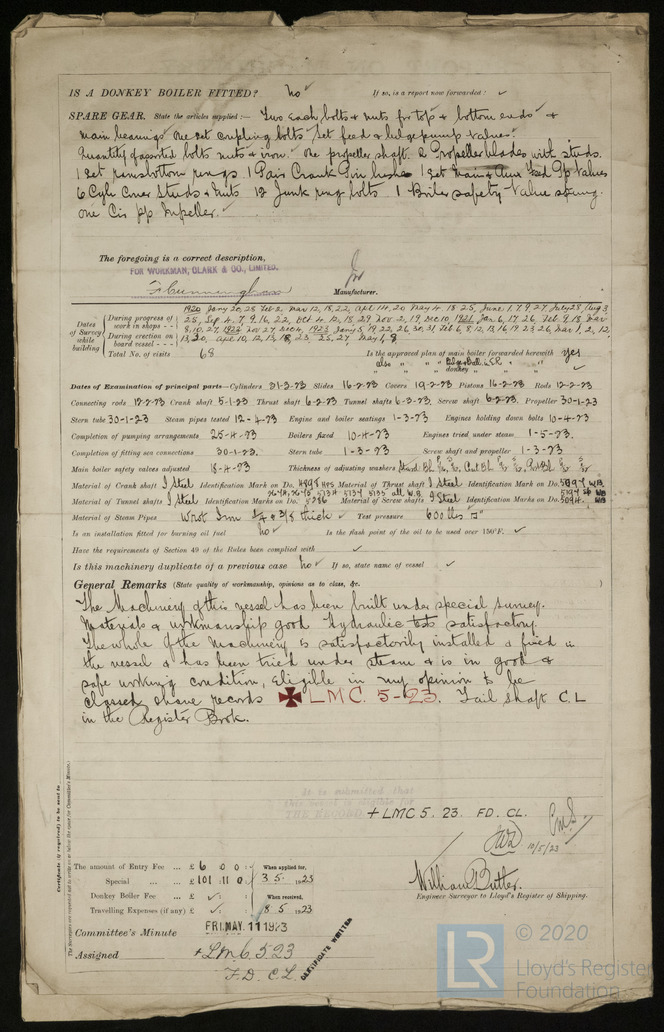 IS A DONKEY BOILER FITTED? no ✓ If so, is a report now forwarded? ✓
SPARE GEAR. State the articles supplied:— Two each bolts & nuts for top & bottom ends &
main bearings one set coupling bolts set feed & bilge pump valves
Quantity of assorted bolts nuts & iron. one propeller shaft. 2 Propeller blades with studs.
1 set ramsbottom rings 1 Pair Crank Pin bushes 1 set main & Feed Pp valves
6 Cyl Cover Studs & Nuts 12 Junk ring bolts 1 Boiler safety Valve spring.
one Cir pp Impeller. ✓
The foregoing is a correct description,
FOR WORKMAN, CLARK & CO., LIMITED.
F Cunningham Manufacturer.
Dates of Survey while building
During progress of work in shops - -
1920 Jany 20, 28 Feb 2, Mar 12, 18, 22, Apl 14, 20 May 4 18 25, June 1, 7, 9, 27 July 28, Aug 3
During erection on board vessel - - -
Total No. of visits 68
Is the approved plan of main boiler forwarded herewith yes
" " " donkey " " " ✓
Dates of Examination of principal parts—Cylinders 21-3-23 Slides 16-2-23 Covers 19-2-23 Pistons 16-2-23 Rods 12-2-23
Connecting rods 12-2-23 Crank shaft 5-1-23 Thrust shaft 6-2-23 Tunnel shafts 6-3-23. Screw shaft 6-2-23. Propeller 30-1-23
Stern tube 30-1-23 Steam pipes tested 12-4-23 Engine and boiler seatings 1-3-23 Engines holding down bolts 10-4-23
Completion of pumping arrangements 25-4-23 Boilers fixed 10-4-23 Engines tried under steam 1-5-23.
Completion of fitting sea connections 30-1-23. Stern tube 1-3-23 Screw shaft and propeller 1-3-23
Main boiler safety valves adjusted 18-4-23 Thickness of adjusting washers
Material of Crank shaft I Steel Identification Mark on Do. 4898 HPS Material of Thrust shaft I Steel Identification Mark on Do. 5097 WB
Material of Tunnel shafts I Steel Identification Marks on Do. 5286 Material of Screw shafts I Steel Identification Marks on Do. 5094. WB
Material of Steam Pipes Wrot Iron 1/4 & 3/8 thick ✓ Test pressure 600 lbs □"
Is an installation fitted for burning oil fuel no ✓ Is the flash point of the oil to be used over 150°F. ✓
Have the requirements of Section 49 of the Rules been complied with ✓
Is this machinery duplicate of a previous case no ✓ If so, state name of vessel ✓
General Remarks (State quality of workmanship, opinions as to class, &c. )
The Machinery of this vessel has been built under special survey.
Materials & workmanship good Hydraulic tests satisfactory.
The whole of the machinery is satisfactorily installed & fixed in
the vessel & has been tried under steam & is in good &
safe working condition, Eligible in my opinion to be
classed & have records ✠ LMC. 5-23. Tail shaft C.L
in the Register Book.
It is submitted that
this vessel is eligible for
THE RECORD
+ LMC 5. 23. FD. CL.
10/5/23
Certificate (if required) to be sent to
The amount of Entry Fee ... £ 6 : 0 : 0 : When applied for,
Special ... ... £ 101 : 11 0 : 3 5. 1923
Donkey Boiler Fee ... £ ✓ : : When received,
Travelling Expenses (if any) £ ✓ : : 8 5 1923
William Butler.
Engineer Surveyor to Lloyd's Register of Shipping.
Committee's Minute FRI. MAY. 11 1923
Assigned + LMC 5.23
F. D. C L.
CERTIFICATE WRITTEN
LR © 2020
Lloyd's Register
Foundation